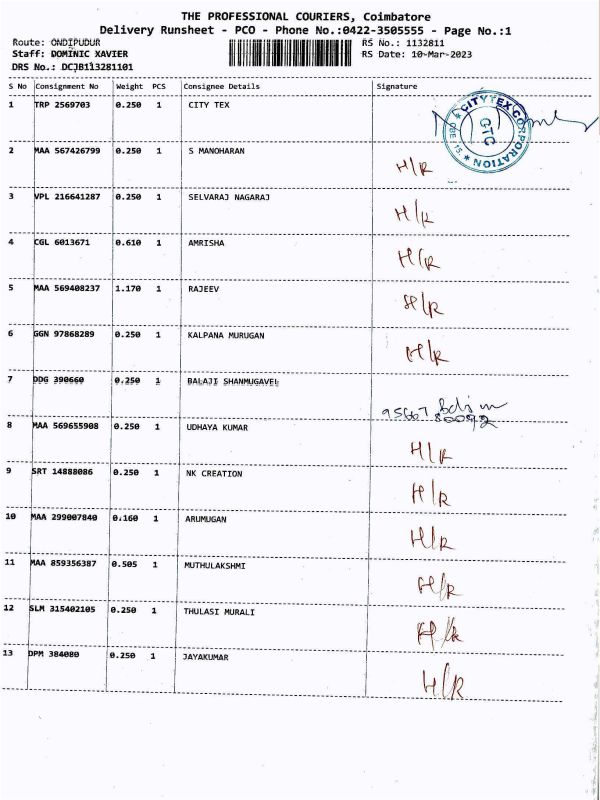 THE PROFESSIONAL COURIERS, Coimbatore
Delivery Runsheet - PCO - Phone No.:0422-3505555 - Page No.:1
Route: ONDIPUDUR RS No.: 1132811
Staff: DOMINIC XAVIER RS Date: 10-Mar-2023
DRS No.: DCJB113281101
S No Consignment No Weight PCS Consignee Details Signature
1 TRP 2569703 0.250 1 CITY TEX
CITYTEX CORPORATION
CBE-15
CTC
2 MAA 567426799 0.250 1 S MANOHARAN H/R
3 VPL 216641287 0.250 1 SELVARAJ NAGARAJ H/R
4 CGL 6013671 0.610 1 AMRISHA H/R
5 MAA 569408237 1.170 1 RAJEEV H/R
6 GGN 97868289 0.250 1 KALPANA MURUGAN H/R
7 DDG 390660 0.250 1 BALAJI SHANMUGAVEL
95667 80092
8 MAA 569655908 0.250 1 UDHAYA KUMAR H/R
9 SRT 14888086 0.250 1 NK CREATION H/R
10 MAA 299007840 0.160 1 ARUMUGAN H/R
11 MAA 859356387 0.505 1 MUTHULAKSHMI H/R
12 SLM 315402105 0.250 1 THULASI MURALI H/R
13 DPM 384080 0.250 1 JAYAKUMAR H/R